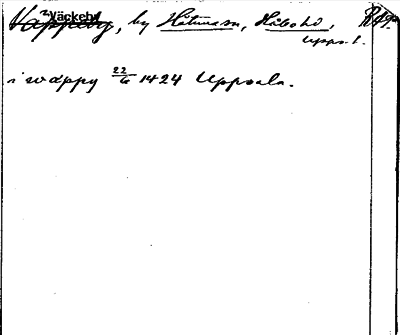 Väckeby
Väppeby, by Håtuna sn, Håbo hd,
Upps. l.
i wæppy 22/6 1424 Uppsala.